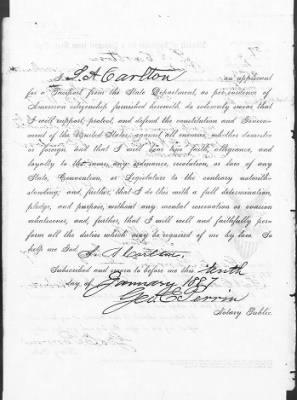 I, L A Carlton an applicant
for a Passport from the State Department, as per evidence of
American citizenship furnished herewith, do solemnly swear that
I will support, protect, and defend the constitution and Govern-
ment of the United States, against all enemies, whether domestic
or foreign, and that I will bear true faith, allegiance, and
loyalty to the same, any ordinance, resolution, or law of any
State, Convention, or Legislature to the contrary notwith-
standing; and, further, that I do this with a full determination,
pledge, and purpose, without any mental reservation or evasion
whatsoever; and, further, that I will well and faithfully per-
form all the duties which may be required of me by law. So
help me God. Carlton
Subscribed and sworn to before me this tenth
day of January 1887
Geo. E. Perrin
Notary Public.